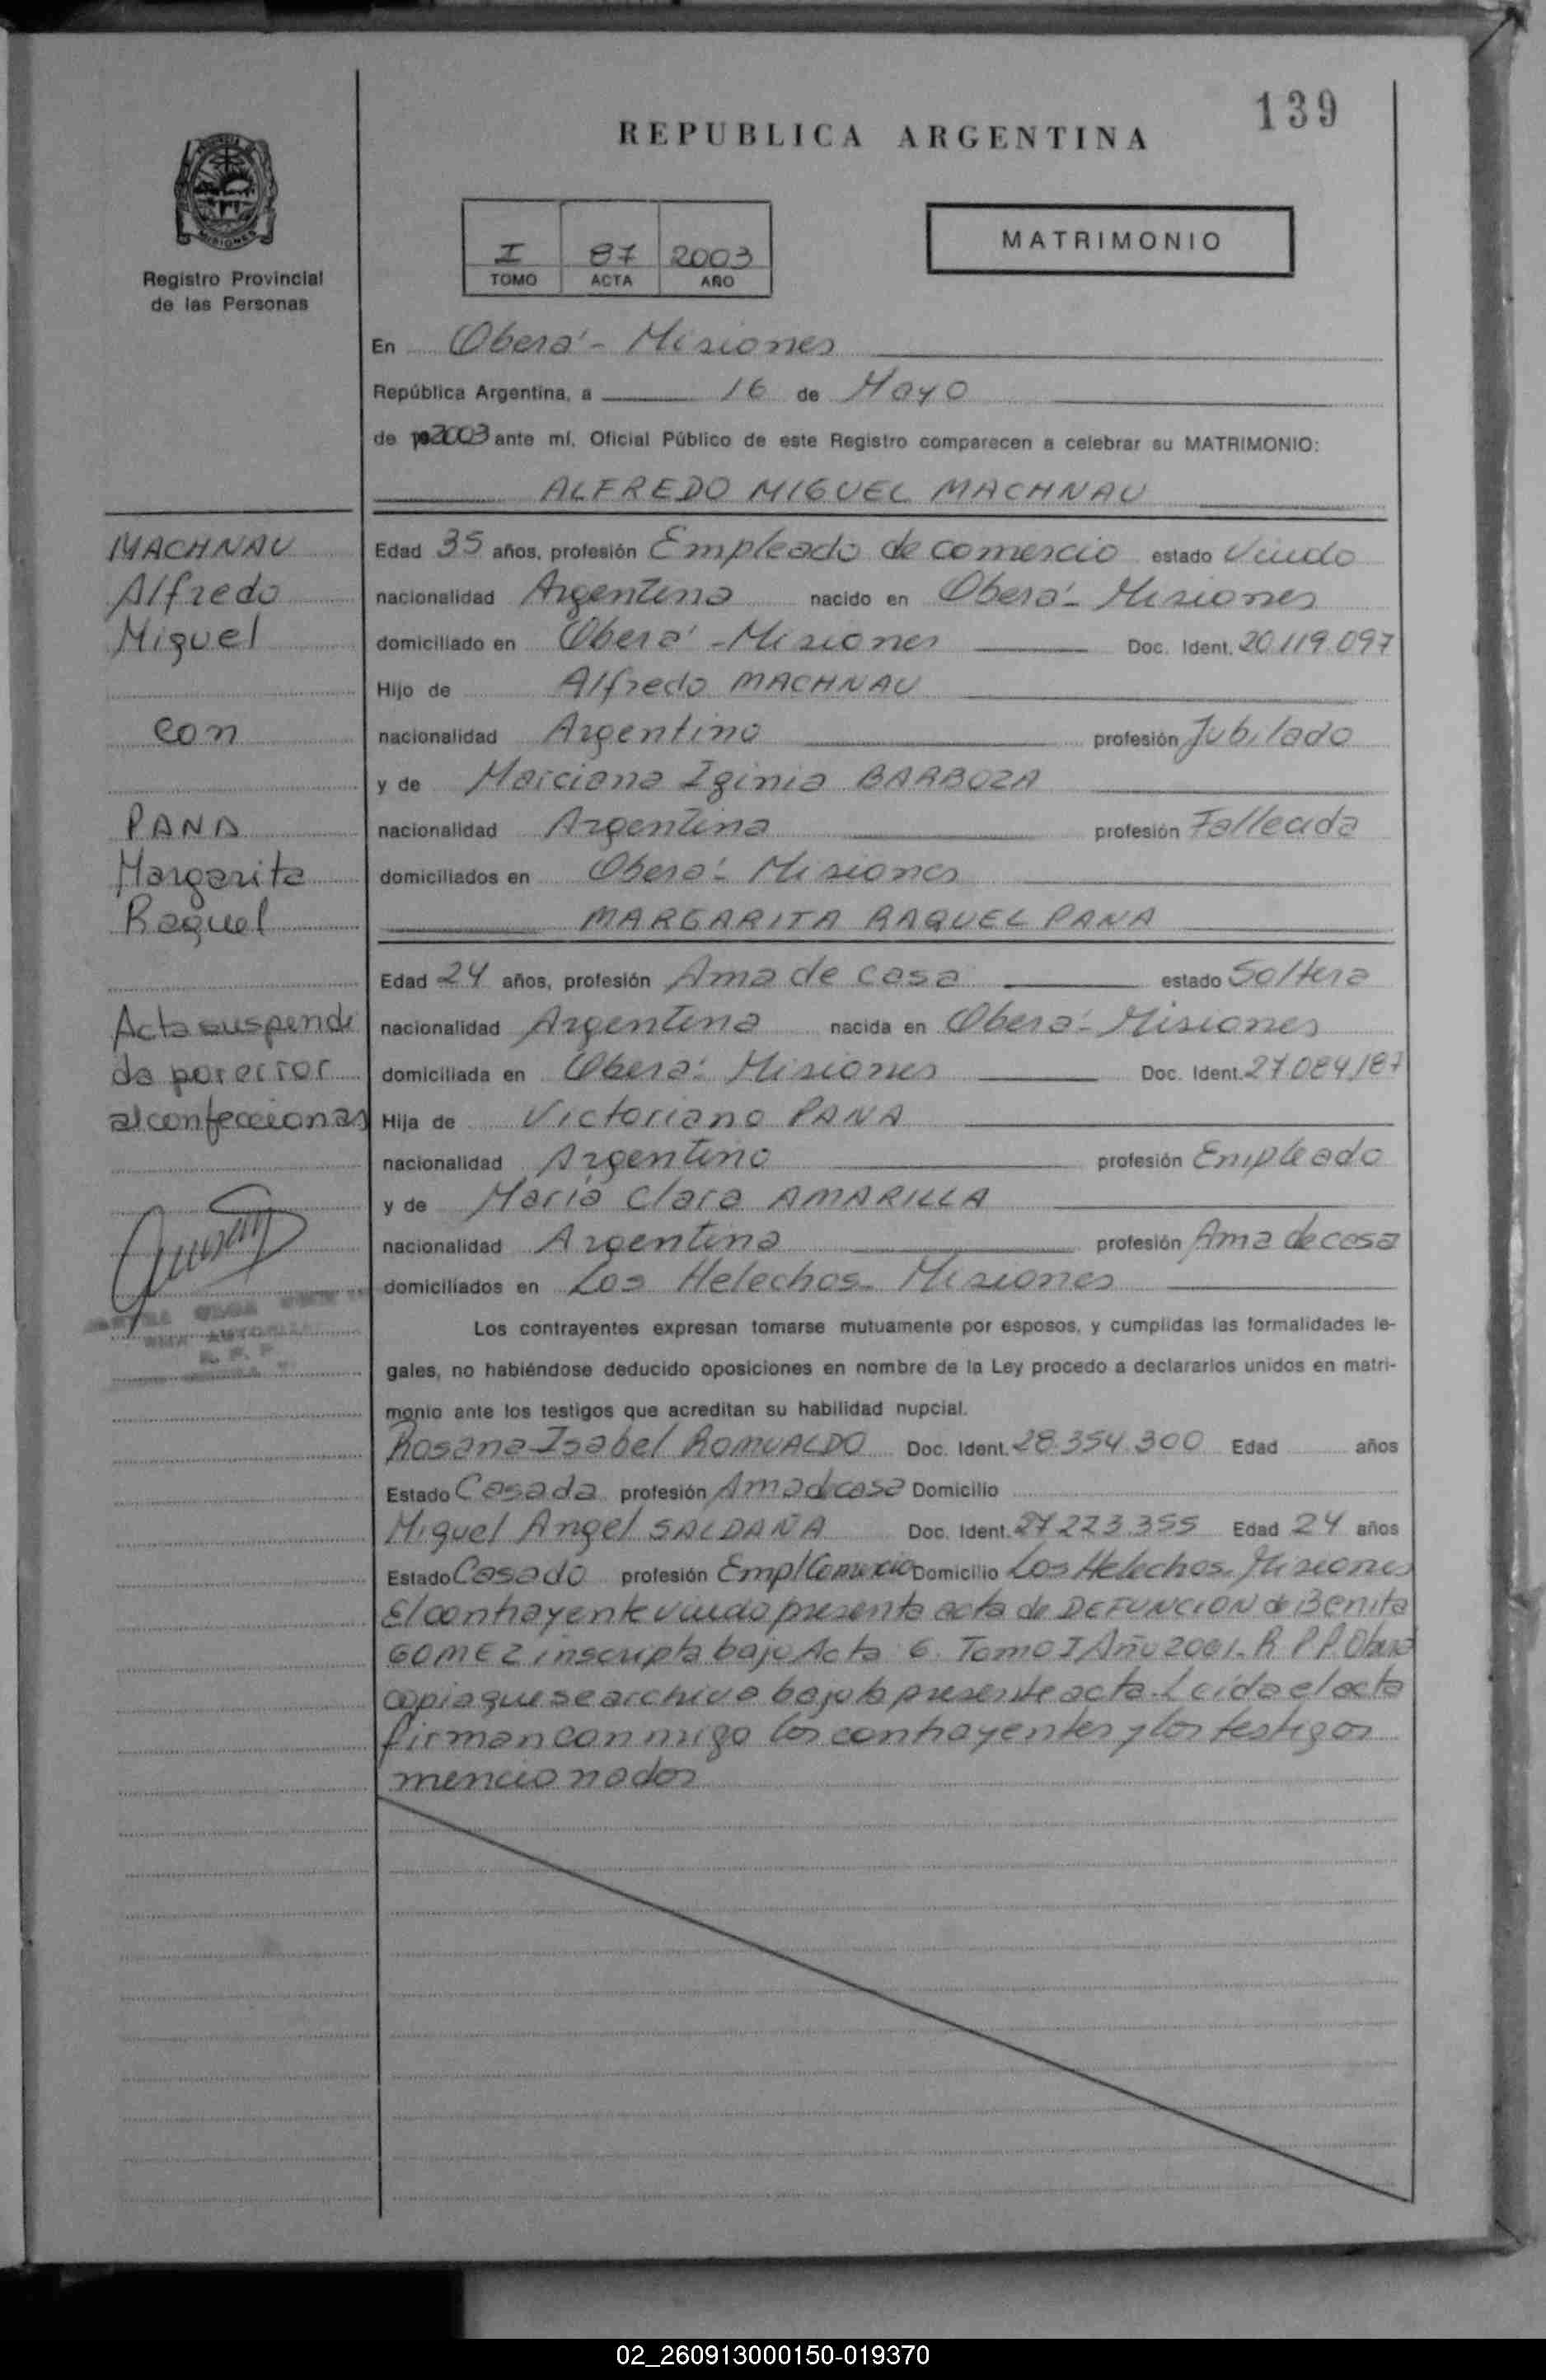 139
REPUBLICA ARGENTINA
MISIONES
Registro Provincial
de las Personas
I 87 2003
TOMO ACTA AÑO
MATRIMONIO
En Oberá - Misiones
República Argentina, a 16 de Mayo
de 2003 ante mí, Oficial Público de este Registro comparecen a celebrar su MATRIMONIO:
ALFREDO MIGUEL MACHNAU
MACHNAU
Alfredo
Miguel
con
PANA
Margarita
Raquel
Acta suspendi
da por error
al confeccionar
Edad 35 años, profesión Empleado de comercio estado Viudo
nacionalidad Argentina nacido en Oberá - Misiones
domiciliado en Oberá - Misiones Doc. Ident. 20.119.097
Hijo de Alfredo MACHNAU
nacionalidad Argentino profesión Jubilado
y de Marciana Iginia BARBOZA
nacionalidad Argentina profesión Fallecida
domiciliados en Oberá - Misiones
MARGARITA RAQUEL PANA
Edad 24 años, profesión Ama de casa estado Soltera
nacionalidad Argentina nacida en Oberá - Misiones
domiciliada en Oberá - Misiones Doc. Ident. 27.084.187
Hija de Victoriano PANA
nacionalidad Argentino profesión Empleado
y de María Clara AMARILLA
nacionalidad Argentina profesión Ama de casa
domiciliados en Los Helechos - Misiones
Los contrayentes expresan tomarse mutuamente por esposos, y cumplidas las formalidades le-
gales, no habiéndose deducido oposiciones en nombre de la Ley procedo a declararlos unidos en matri-
monio ante los testigos que acreditan su habilidad nupcial.
Rosana Isabel ROMUALDO Doc. Ident. 28.354.300 Edad años
Estado Casada profesión Ama de casa Domicilio
Miguel Angel SALDAÑA Doc. Ident. 27.273.355 Edad 24 años
Estado Casado profesión Empl Comercio Domicilio Los Helechos - Misiones
El contrayente viudo presenta acta de DEFUNCION de Benita
GOMEZ inscripta bajo Acta 6. Tomo I Año 2001. R.P.P. Oberá
copia que se archiva bajo la presente acta. Leída el acta
firman conmigo los contrayentes y los testigos
mencionados
02_260913000150-019370